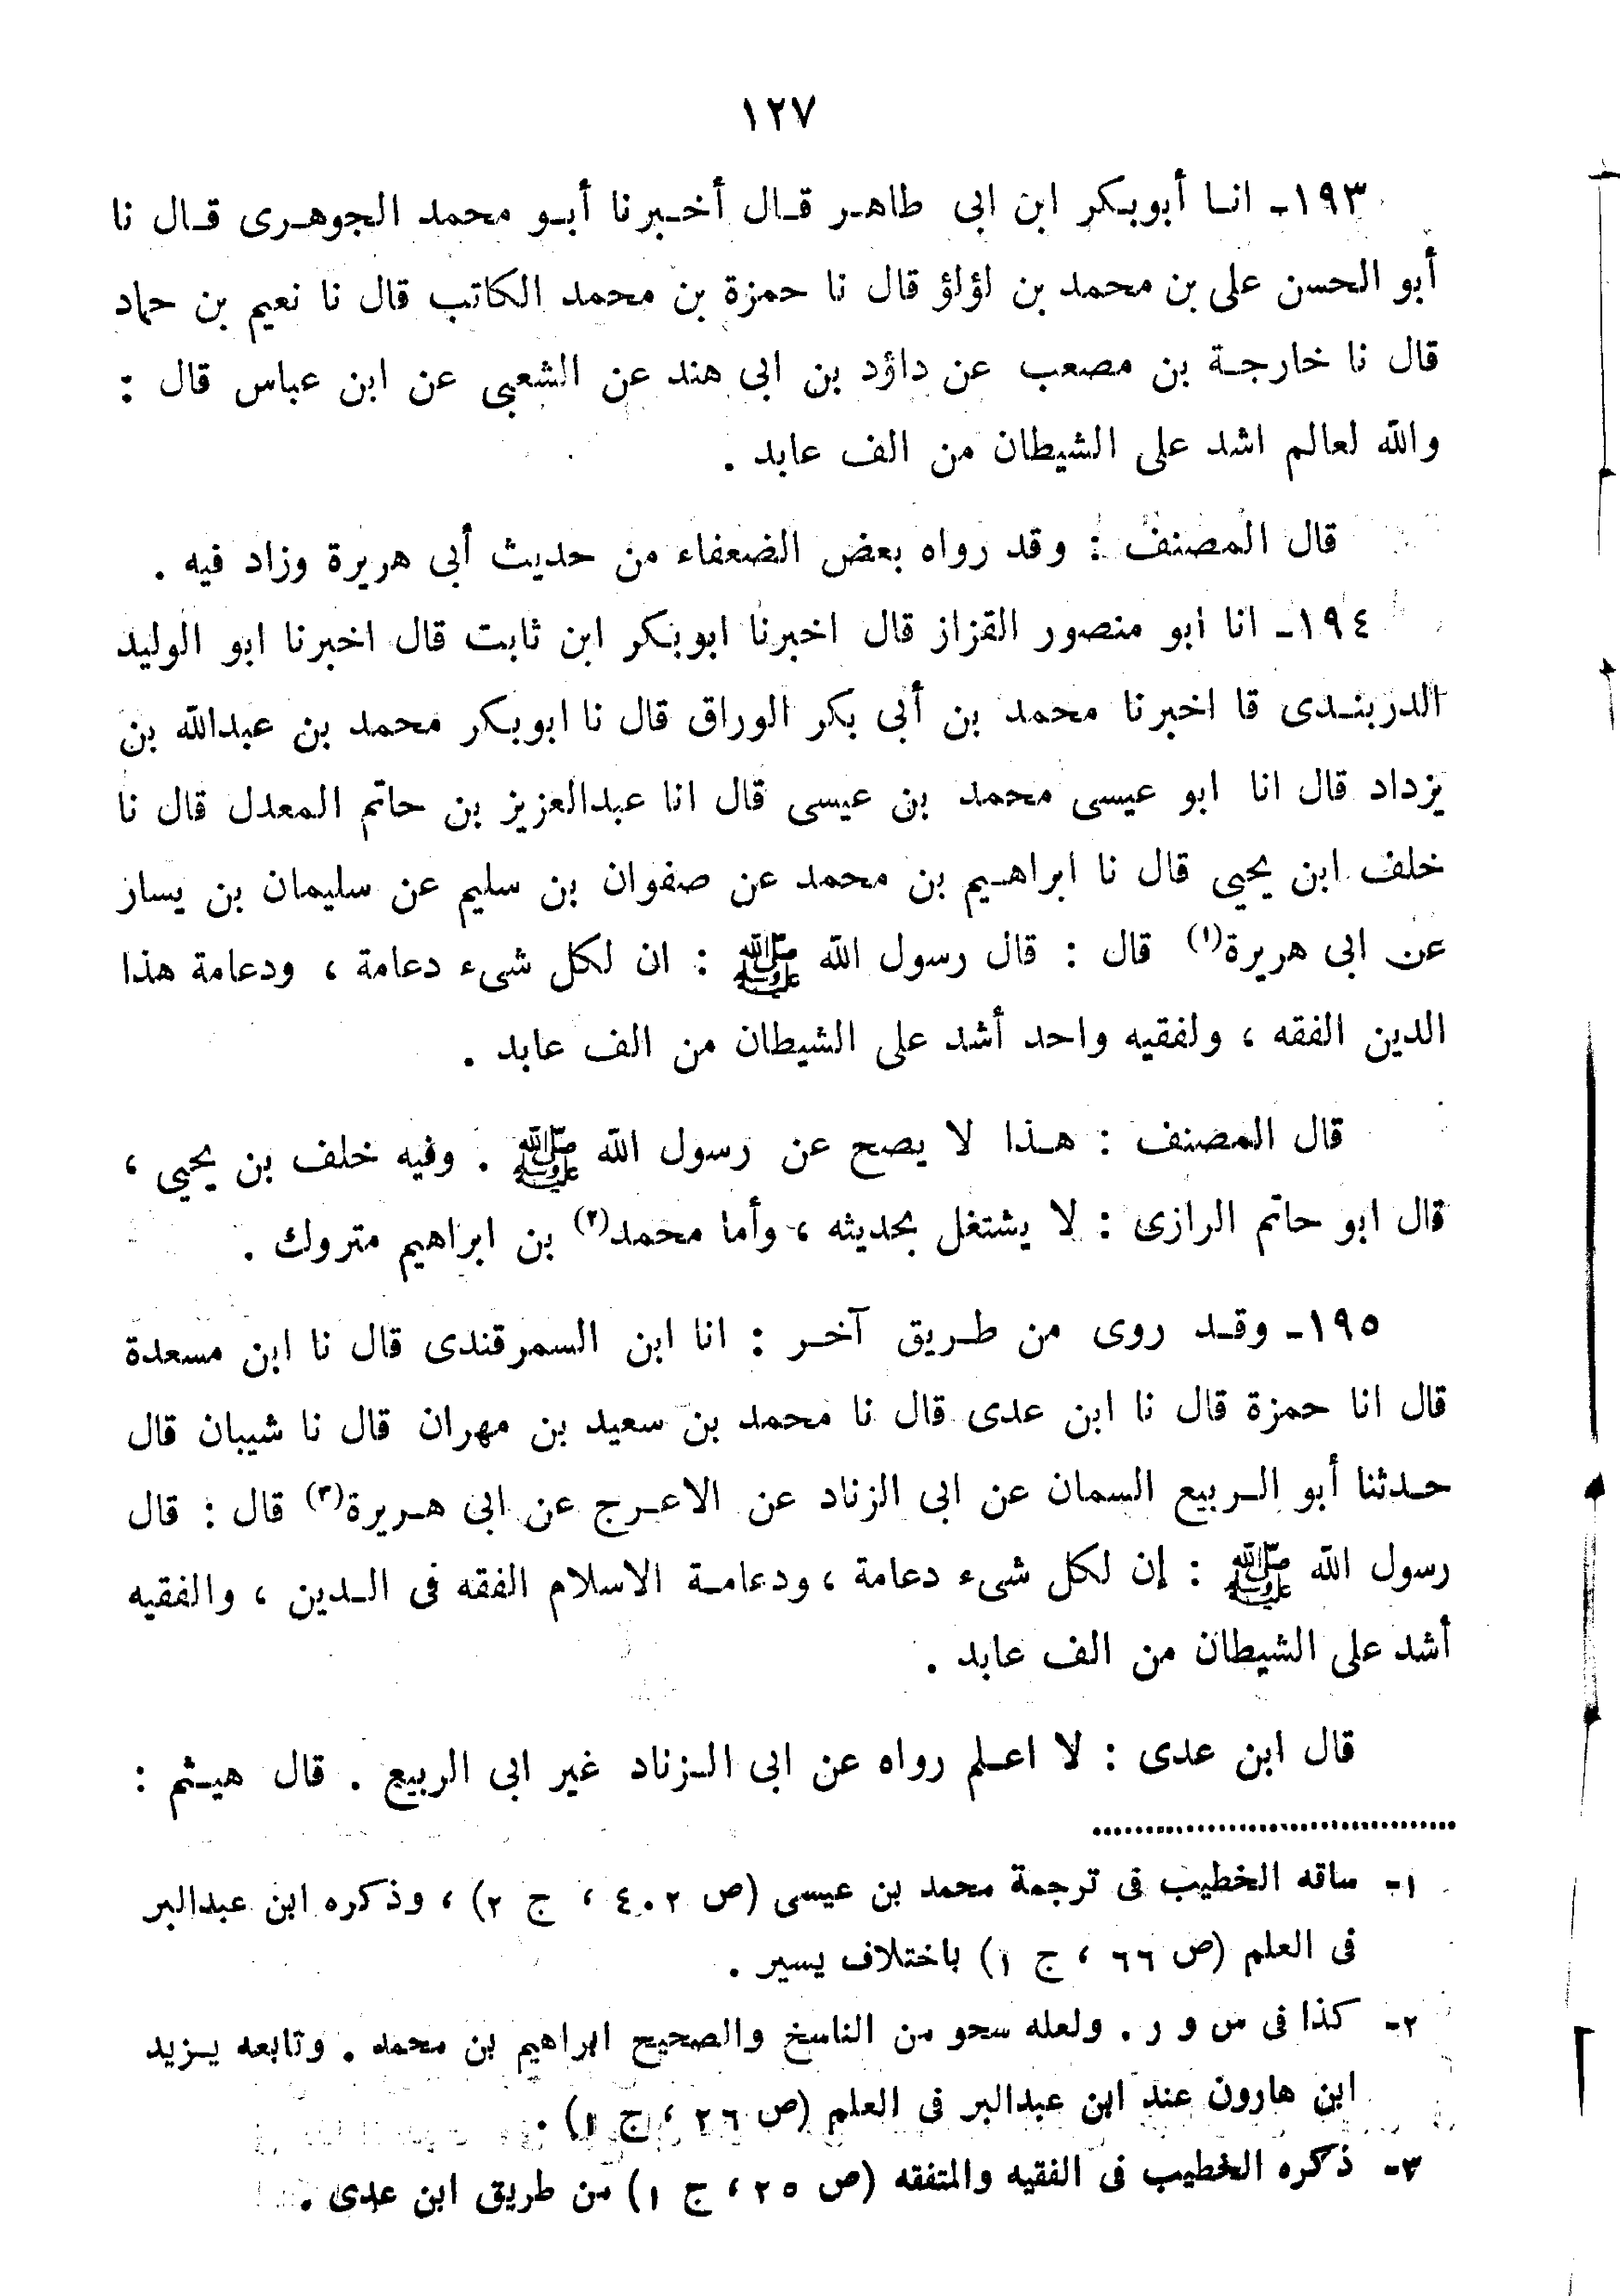 ١٢٧
١٩٣ـ انا أبوبكر ابن ابى طاهر قال أخبرنا أبو محمد الجوهرى قال نا
أبو الحسن على بن محمد بن لؤلؤ قال نا حمزة بن محمد الكاتب قال نا نعيم بن حماد
قال نا خارجة بن مصعب عن داؤد بن ابى هند عن الشعبى عن ابن عباس قال :
والله لعالم اشد على الشيطان من الف عابد .
قال المصنف : وقد رواه بعض الضعفاء من حديث أبى هريرة وزاد فيه .
١٩٤ـ انا ابو منصور القزاز قال اخبرنا ابوبكر ابن ثابت قال اخبرنا ابو الوليد
الدربندى قا اخبرنا محمد بن أبى بكر الوراق قال نا ابوبكر محمد بن عبدالله بن
يزداد قال انا ابو عيسى محمد بن عيسى قال انا عبدالعزيز بن حاتم المعدل قال نا
خلف ابن يحيى قال نا ابراهيم بن محمد عن صفوان بن سليم عن سليمان بن يسار
عن ابى هريرة(١) قال : قال رسول الله ﷺ : ان لكل شىء دعامة ، ودعامة هذا
الدين الفقه ، ولفقيه واحد أشد على الشيطان من الف عابد .
قال المصنف : هذا لا يصح عن رسول الله ﷺ . وفيه خلف بن يحيى ،
قال ابو حاتم الرازى : لا يشتغل بحديثه ، وأما محمد(٢) بن ابراهيم متروك .
١٩٥ـ وقد روى من طريق آخر : انا ابن السمرقندى قال نا ابن مسعدة
قال انا حمزة قال نا ابن عدى قال نا محمد بن سعيد بن مهران قال نا شيبان قال
حدثنا أبو الربيع السمان عن ابى الزناد عن الاعرج عن ابى هريرة(٣) قال : قال
رسول الله ﷺ : إن لكل شىء دعامة ، ودعامة الاسلام الفقه فى الدين ، والفقيه
أشد على الشيطان من الف عابد .
قال ابن عدى : لا اعلم رواه عن ابى الزناد غير ابى الربيع . قال هيثم :
١ـ ساقه الخطيب فى ترجمة محمد بن عيسى (ص ٤٠٢ ، ج ٢) ، وذكره ابن عبدالبر
فى العلم (ص ٦٦ ، ج ١) باختلاف يسير .
٢ـ كذا فى س و ر . ولعله سحو من الناسخ والصحيح ابراهيم بن محمد . وتابعه يزيد
ابن هارون عند ابن عبدالبر فى العلم (ص ٢٦ ، ج ١) .
٣ـ ذكره الخطيب فى الفقيه والمتفقه (ص ٢٥ ، ج ١) من طريق ابن عدى .